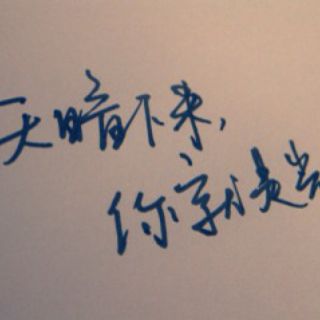 天暗下来,
你就是